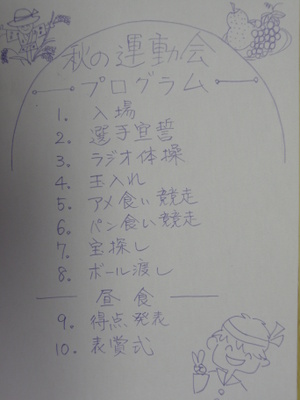 秋の運動会
プログラム
1. 入場
2. 選手宣誓
3. ラジオ体操
4. 玉入れ
5. アメ食い競走
6. パン食い競走
7. 宝探し
8. ボール渡し
昼食
9. 得点発表
10. 表賞式